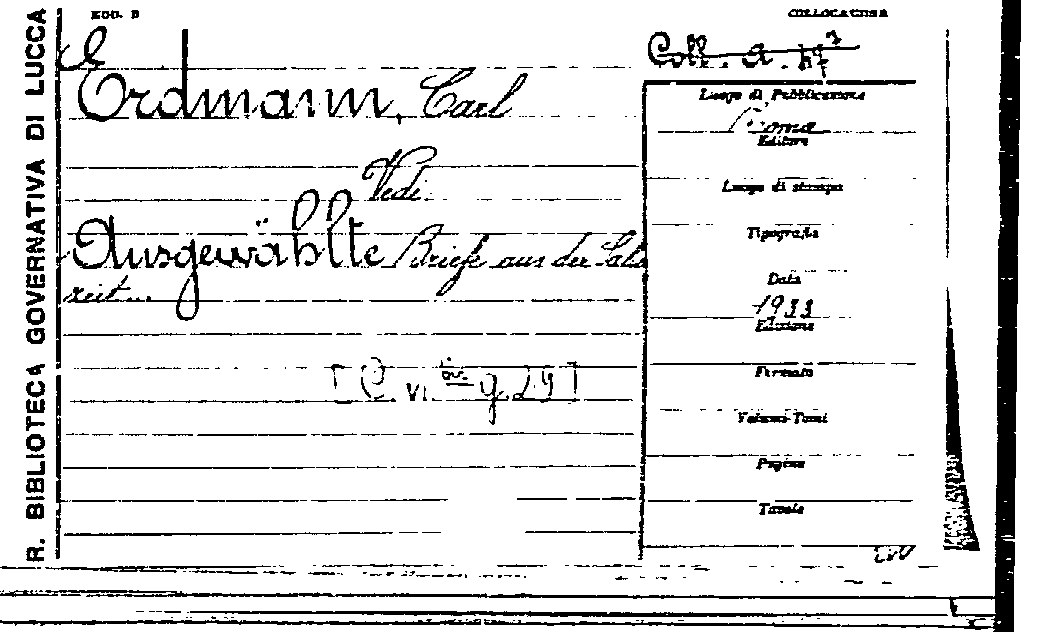 MOD. B
COLLOCAZIONE
R. BIBLIOTECA GOVERNATIVA DI LUCCA
E
Coll. a.
Erdmann, Carl
Vedi
Ausgewählte Briefe aus der Salo
zeit...
[C. vi. bis g. 29]
Luogo di Pubblicazione
Roma
Editore
Luogo di stampa
Tipografia
Data
1933
Edizione
Formato
Volume-Tomi
Pagine
Tavole